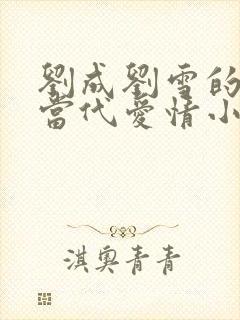 劉成劉雪的
當代愛情小
淇奧青青